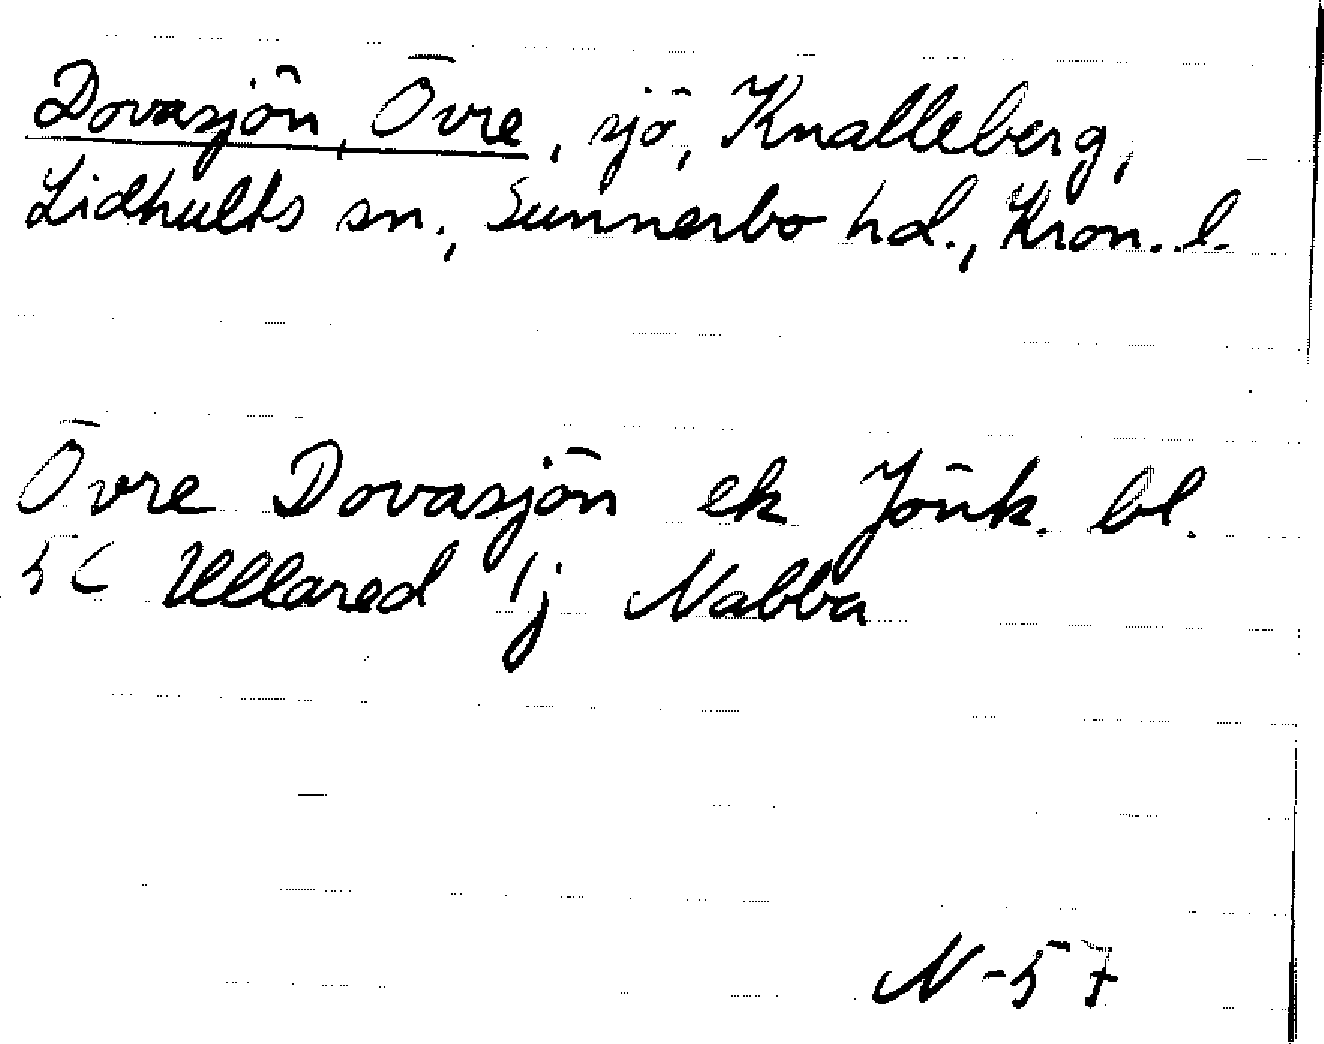 Dovasjön, Övre, sjö, Knalleberg,
Lidhults sn., Sunnerbo hd., Kron. l.
Övre Dovasjön ek Jönk. bl.
5C Ullared 1j Nabba
N-57